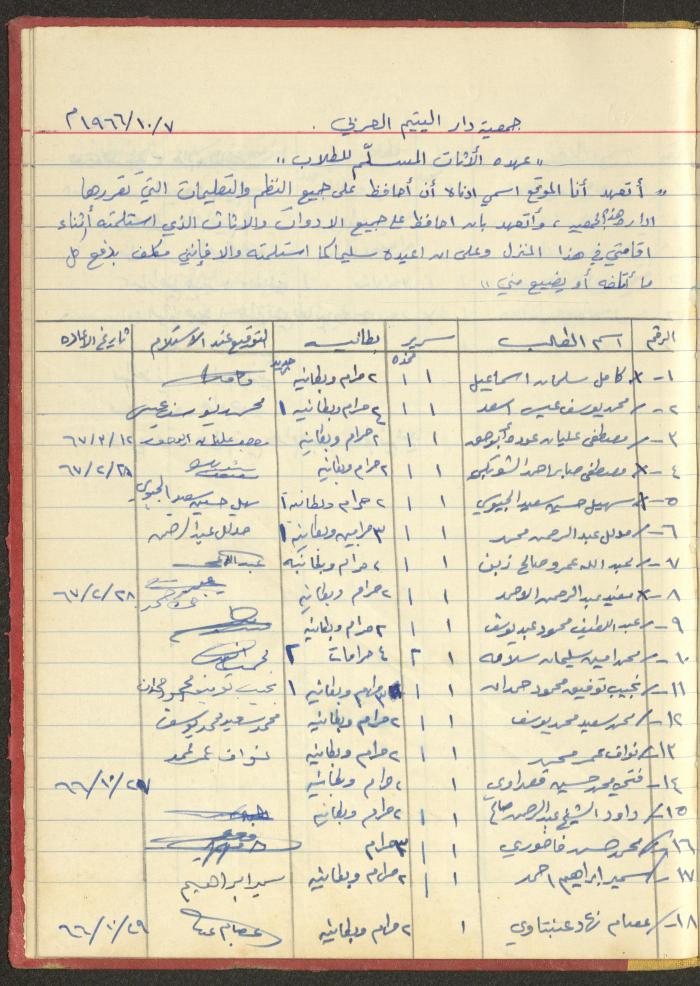 جمعية دار اليتيم العربي . ١٩٦٦/١٠/٧م
" عهده الأثاث المسلّم للطلاب "
" أتعهد أنا الموقع اسمي ادناه أن أحافظ على جميع النظم والتعليمات التي تقررها
ادارة هذه الجمعيه ، وأتعهد بان احافظ على جميع الادوات والاثاث الذي استلمته أثناء
اقامتي في هذا المنزل وعلى ان اعيده سليما كما استلمته والا فإنني مكلف بدفع كل
ما أتلفه أو يضيع مني "
الرقم اسم الطالب سرير مخده بطانيه التوقيع عند الاستلام تاريخ الاعاده
١- كامل سلمان اسماعيل ١ ١ ٢ حرام وبطانيه جديد
٢- محمد يوسف عيسى اسعد ١ ١ ٤ حرام وبطانيه ١ محمد يوسف عيسى
٣- مصطفى عليان عوده ابو ١ ١ ٢ حرام وبطانيه مصطفى عليان ٦٧/٢/١٢
٤- مصطفى صابر احمد الشوبكي ١ ١ ٢ حرام وبطانيه ٦٧/٢/٢٨
٥- سهيل حسين سعيد الجيوسي ١ ١ ٢ حرام وبطانيه ١ سهيل حسين سعيد الجيوسي
٦- عبد الرحمن محمد ١ ١ ٣ حرامين وبطانيه ١ عبد الرحمن
٧- عبد الله عمرو صالح زبن ١ ١ ٢ حرام وبطانيه عبدالله
٨- مفيد عبد الرحمن الاحمد ١ ١ ٢ حرام وبطانيه ٦٧/٢/٢٨
٩- عبد اللطيف محمود عبد يوسف ١ ١ ٢ حرام وبطانيه
١٠- محمد امين سليمان سلامه ١ ٢ ٤ حرامات ٢
١١- نجيب توفيق محمود حمدان ١ ١ ٣ حرام وبطانيه ١ نجيب توفيق محمود حمدان
١٢- محمد سعيد محمد يوسف ١ ١ ٢ حرام وبطانيه محمد سعيد محمد يوسف
١٣- نواف عمر محمد ١ ١ ٢ حرام وبطانيه نواف عمر محمد
١٤- فتحي محمد حسين قعداوي ١ ٢ حرام وبطانيه ٦٦/١٠/٢٧
١٥- داود الشيخ عبد الرحمن صالح ١ ١ ٢ حرام وبطانيه
١٦- محمد حسن فاخوري ١ ١ ٣ حرام
١٧- سمير ابراهيم احمد ١ ١ ٢ حرام وبطانيه سمير ابراهيم
١٨- عصام نهاد عنبتاوي ١ ٢ حرام وبطانيه عصام ٦٦/١٠/٢٩